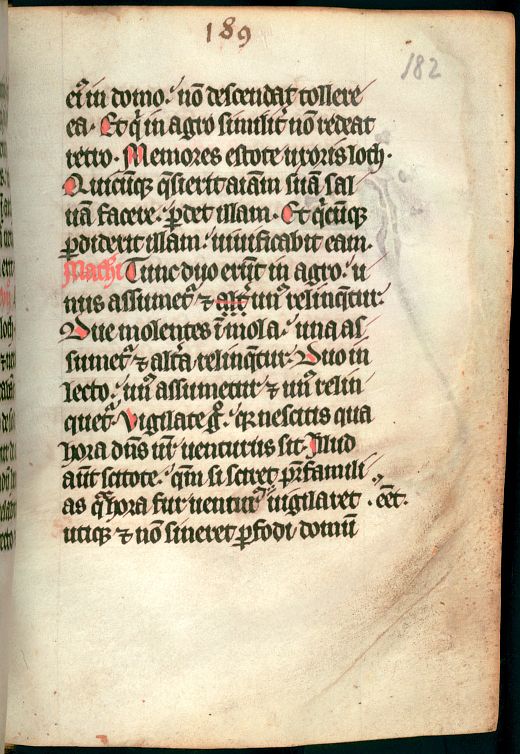 189
182
eiꝰ in domo. nō descendat tollere
ea. Et q̇ in agro similit̛ nō redeat
retro. Memores estote uxoris loth.
Quicūqꝫ q̄sierit aīam suā sal
uā facere. ꝑdet illam. Et q̇cūqꝫ
ꝑdiderit illam. uiuificabit eam.
Mathi Tunc duo erūt in agro. u
nus assumet̛ ⁊ alt̛ unꝰ relinq̄tur.
Due molentes ī mola. una as
sumet̛ ⁊ altᵃ relinq̄tur. Duo in
lecto. unꝰ assumetur ⁊ unꝰ relin
quet̛. Vigilate gͦ. qꝛ nescitis qua
hora dn̄s ur̄ uenturus sit. Illud
aūt scitote. qm̄ si sciret pr̄ famili
as qᵃ hora fur uenturꝰ eēt. uigilaret
utiqꝫ ⁊ nō sineret ꝑfodi domū